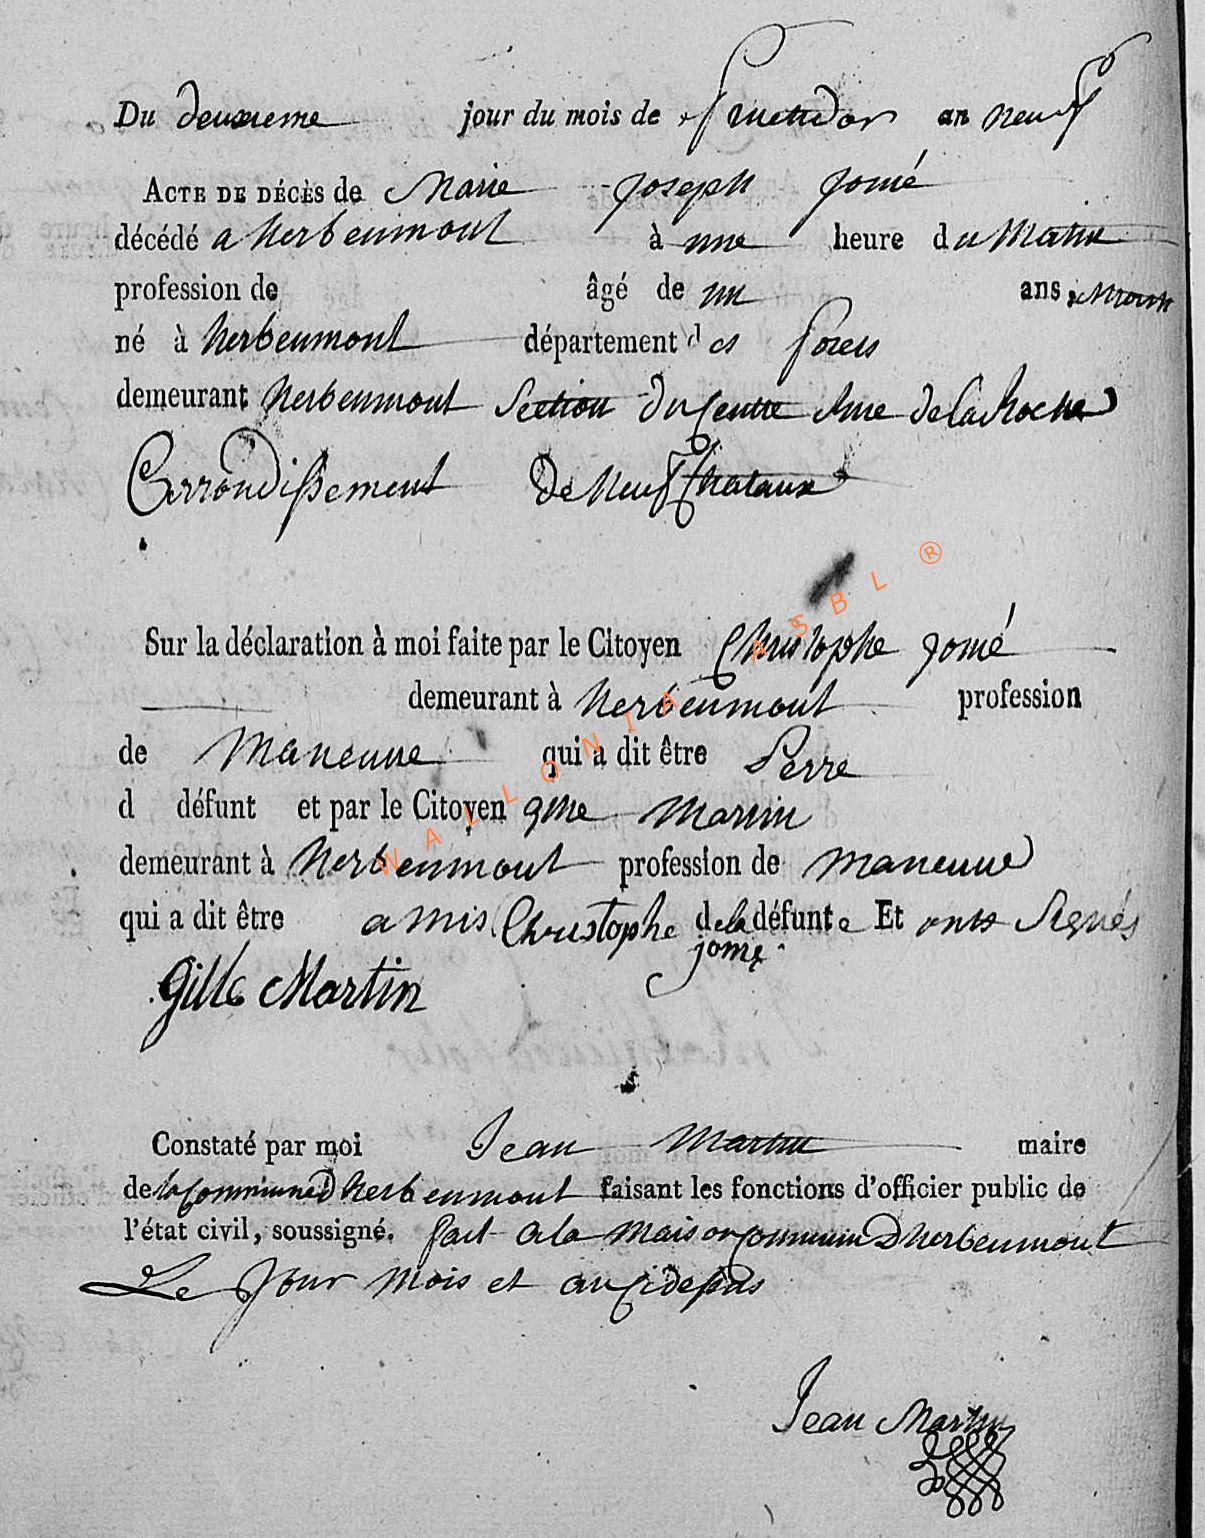 Du deuxieme jour du mois de fructidor an neuf
ACTE DE DÉCÈS de Marie joseph jomé
décédé a herbeumont à une heure du Matin
profession de âgé de un ans
né à herbeumont département des forets
demeurant herbeumont Section du Centre Rue de la Roche
Arrondissement De Neufchataux
Sur la déclaration à moi faite par le Citoyen Christophe jomé
demeurant à herbeumont profession
de maneuve qui a dit être Perre
d défunt et par le Citoyen gille Martin
demeurant à herbeumont profession de maneuve
qui a dit être amis de la défunte Et onts Signés
Christophe jomé
Gille Martin
Constaté par moi Jean Martin maire
de la Commune d herbeumont faisant les fonctions d'officier public de
l'état civil, soussigné. fait a la maison Commun D herbeumont
Le Jour mois et an Cidessus
Jean Martin
WALLONIA ASBL ®